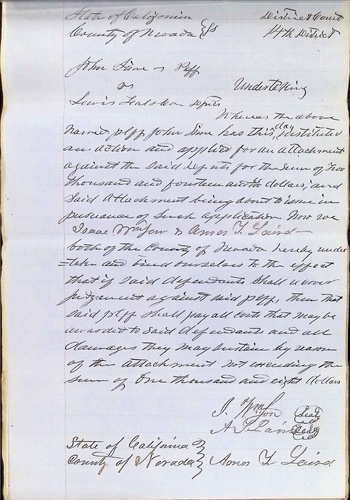 State of California } ss District Court
County of Nevada 14th District
John Sime Plff
vs Undertaking
Lewis defts
Whereas the above
named plff John Sime has this day instituted
an action and applied for an attachment
against the said defts for the sum of two
thousand and fourteen dollars, and
said attachment being about to issue in
pursuance of such application Now we
Isaac & Amos T Laird
both of the County of Nevada hereby under
=take and bind ourselves to the effect
that if said defendants shall recover
judgement against said plff, then that
said plff shall pay all costs that may be
awarded to said defendants and all
damages they may sustain by reason
of the attachment not exceeding the
sum of One thousand and eight dollars
I. Seal
A T Laird Seal
State of California }
County of Nevada } Amos T Laird